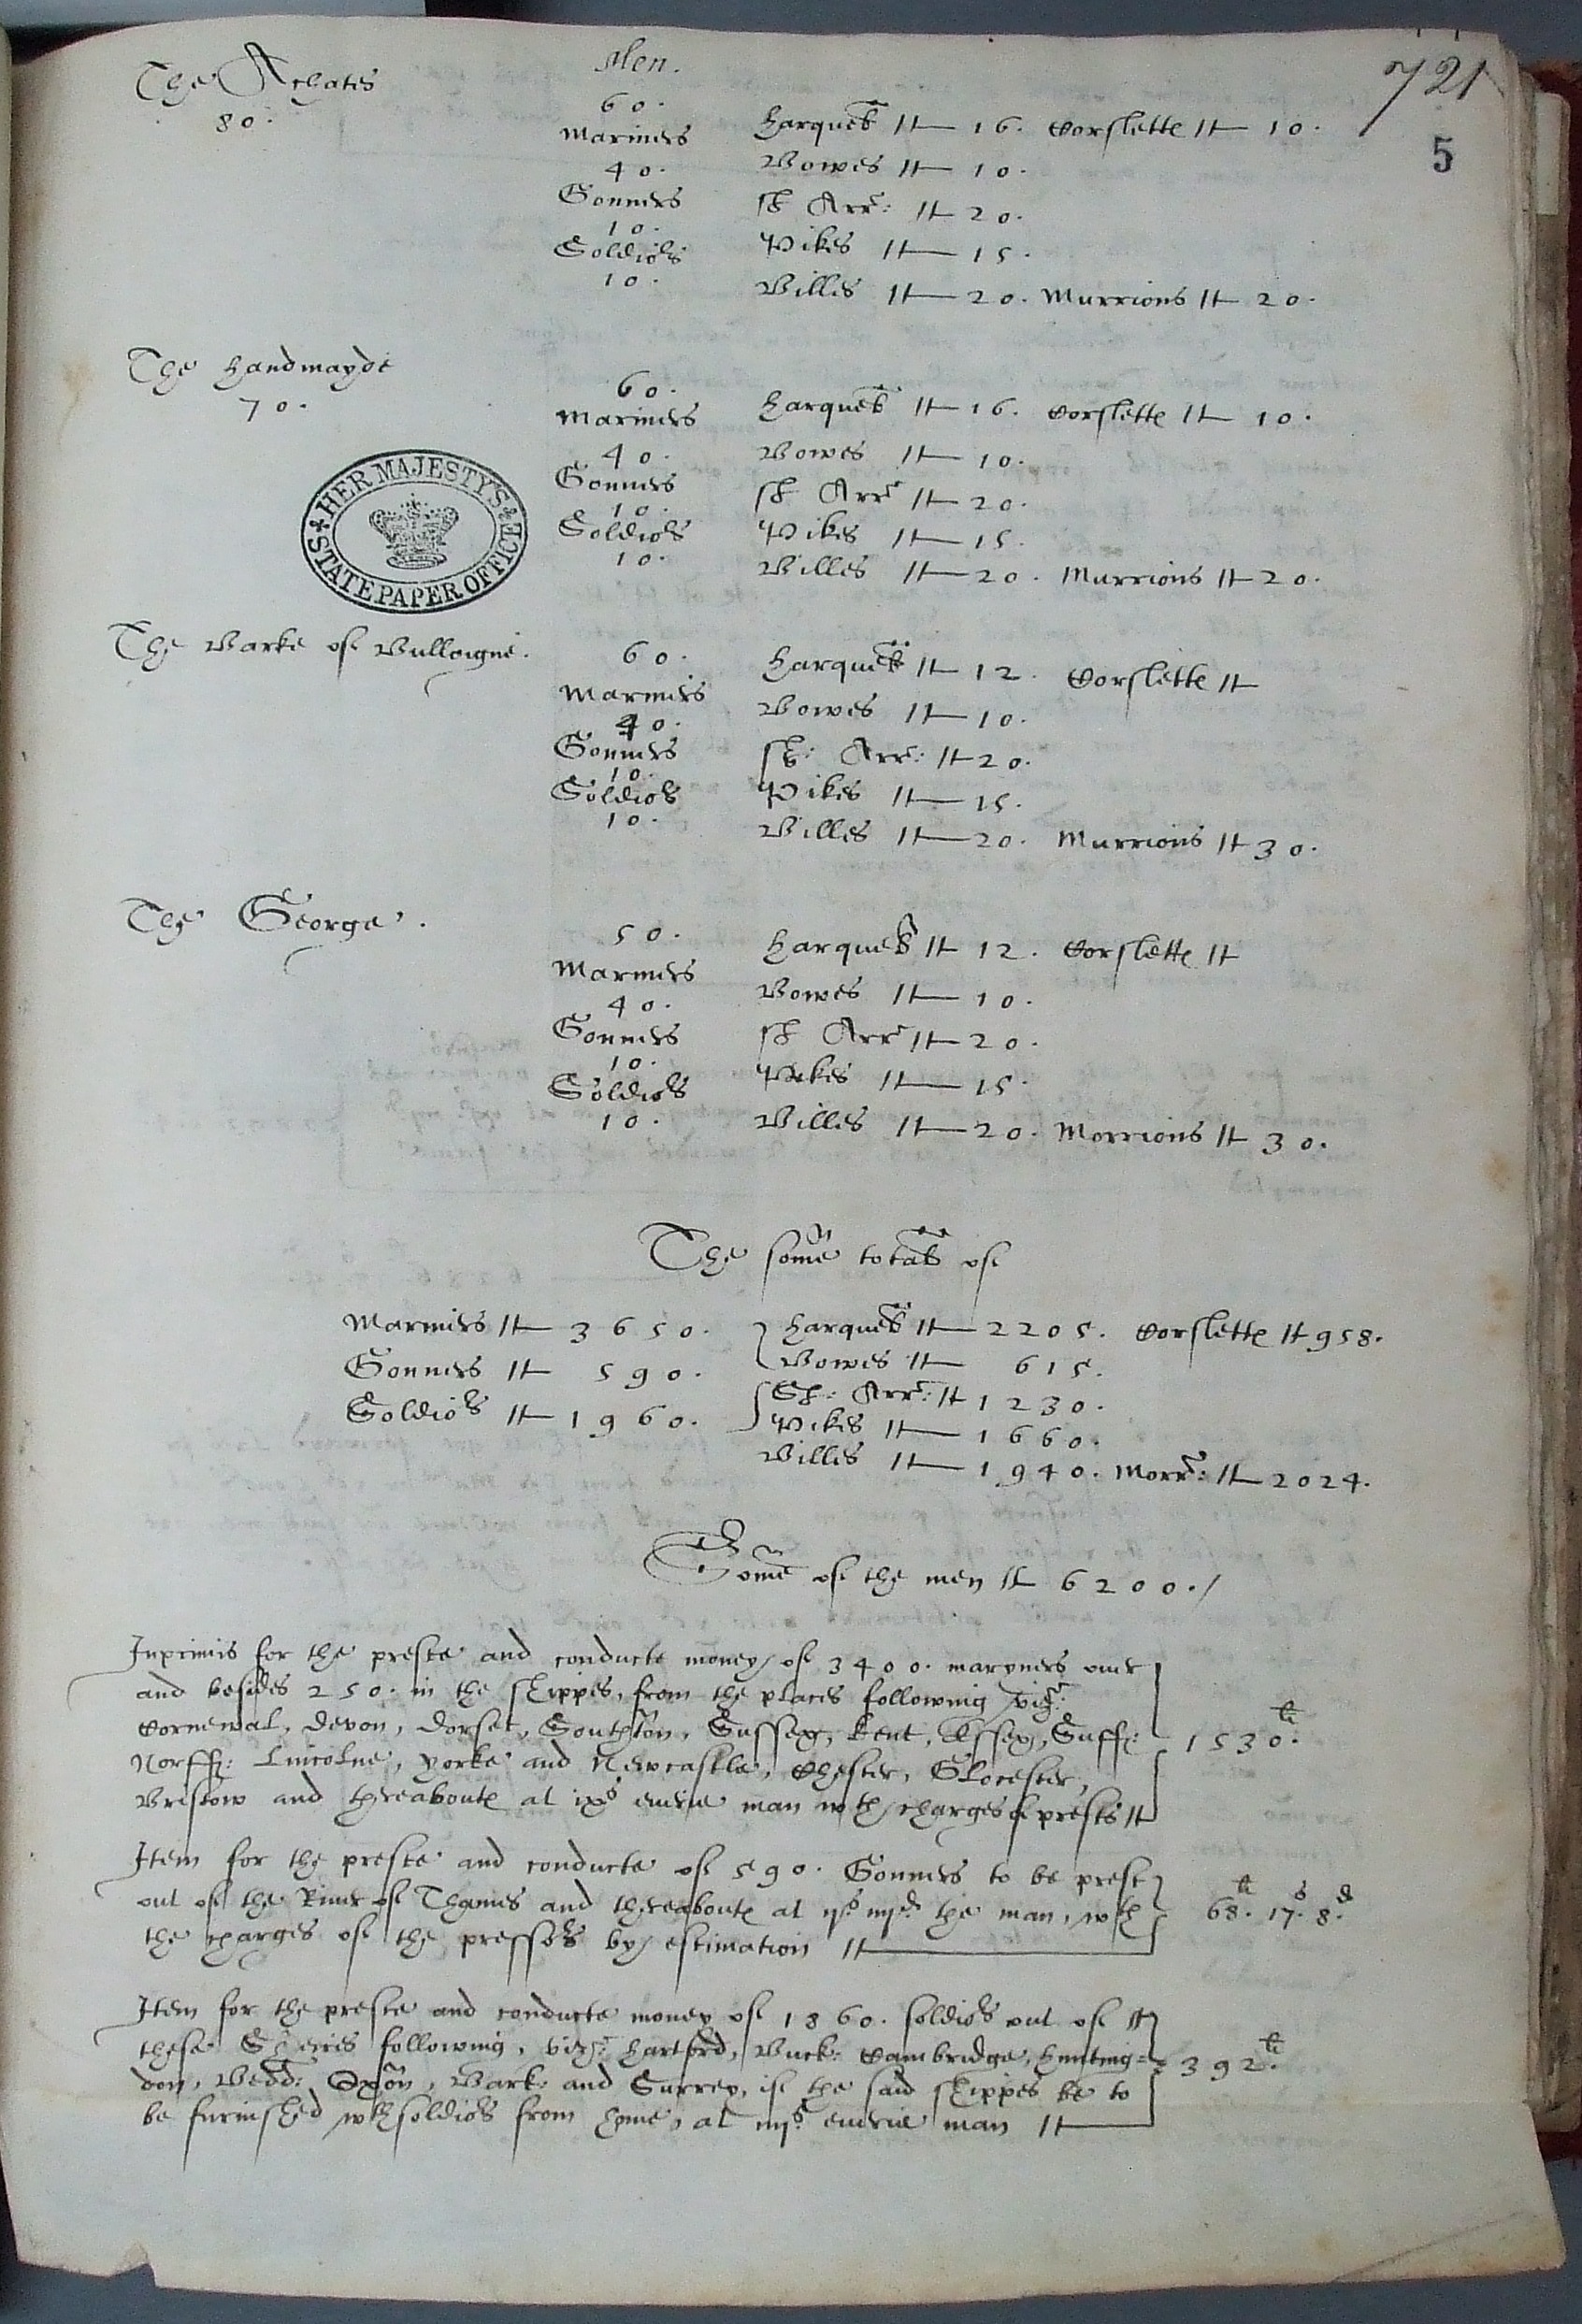 721
5
The Achates
80.
Men.
60.
Mariners
40.
Gonners
10.
Soldiors
10.
Harqueb 16. Corslette 10.
Bowes 10.
sh Arr: 20.
Pikes 15.
Billes 20. Murrions 20.
The Handmayde
70.
60.
Mariners
40.
Gonners
10.
Soldiors
10.
Harqueb 16. Corslette 10.
Bowes 10.
sh Arr 20.
Pikes 15.
Billes 20. Murrions 20.
HER MAJESTY'S STATE PAPER OFFICE
The Barke of Bulloigne.
60.
Mariners
40.
Gonners
10.
Soldiors
10.
Harqueb 12. Corslette
Bowes 10.
sh: Arr: 20.
Pikes 15.
Billes 20. Murrions 30.
The George.
50.
Mariners
40.
Gonners
10.
Soldiors
10.
Harqueb 12. Corslette
Bowes 10.
sh Arr 20.
Pikes 15.
Billes 20. Morrions 30.
The some totall of
Mariners 3650.
Gonners 590.
Soldiors 1960.
Harqueb 2205. Corslette 958.
Bowes 615.
Sh: Arr: 1230.
Pikes 1660.
Billes 1940. Morr: 2024.
Some of the men 6200./
Inprimis for the preste and conducte money of 3400. maryners over
and besides 250. in the shippes, from the places following viz:
Cornewal, Devon, Dorset, Southton, Sussex, Kent, Essex, Suff:
Norff: Lincolne, Yorke and Newcastle, Chester, Glocester,
Bristow and thereaboute at ixs everie man wth charges & prests
1530li.
Item for the preste and conducte of 590. Gonners to be prest
out of the River of Thames and thereaboute at ijs iiijd the man, wth
the charges of the pressors by estimation
68li. 17s. 8d.
Item for the preste and conducte money of 1860. soldiors out of
these Sheires following, viz: Hartford, Buck: Cambridge, Hunting=
don, Bedd: Oxon, Bark: and Surrey, if the said shippes be to
be furnished wth soldiors from home, at iiijs everie man
392li.